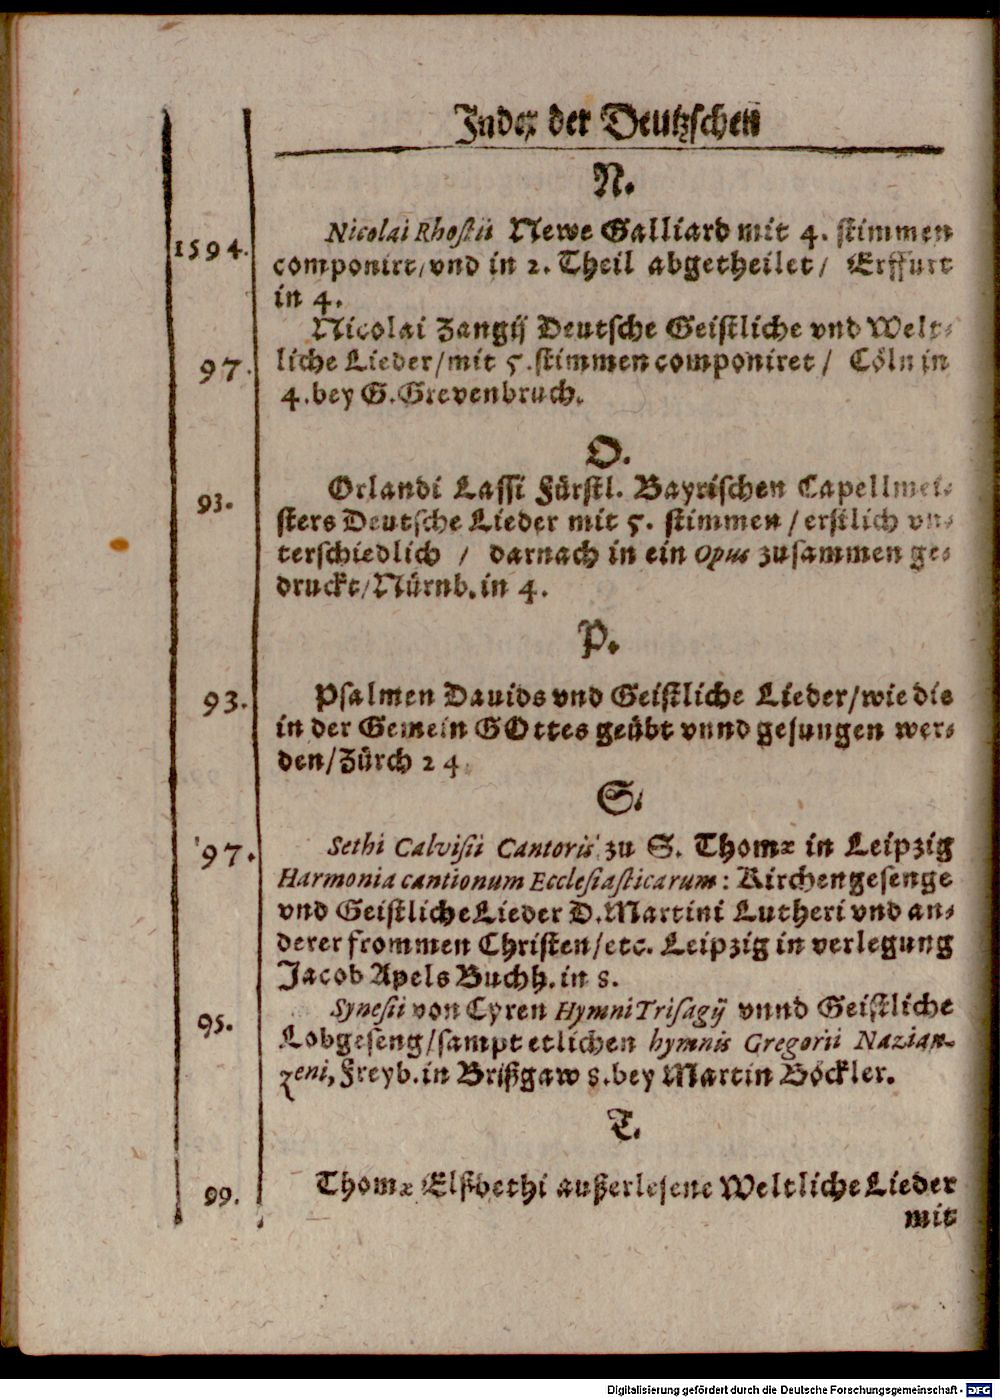 Index der Deutzschen
N.
1594. Nicolai Rhostii Newe Galliard mit 4. stimmen
componirt/vnd in 2. Theil abgetheilet/ Erffurt
in 4.
Nicolai Zangij Deutsche Geistliche vnd Welt-
97. liche Lieder/mit 5. stimmen componiret/ Cöln in
4. bey G. Grevenbruch.
O.
93. Orlandi Lassi Fürstl. Bayrischen Capellmei-
sters Deutsche Lieder mit 5. stimmen/erstlich vn-
terschiedlich / darnach in ein Opus zusammen ge-
druckt/Nürnb. in 4.
P.
93. Psalmen Dauids vnd Geistliche Lieder/wie die
in der Gemein GOttes geübt vnnd gesungen wer-
den/Zürch 24
S.
97. Sethi Calvisii Cantoris zu S. Thomæ in Leipzig
Harmonia cantionum Ecclesiasticarum: Kirchengesenge
vnd Geistliche Lieder D. Martini Lutheri vnd an-
derer frommen Christen/etc. Leipzig in verlegung
Jacob Apels Buchh. in 8.
95. Synesii von Cyren Hymni Trisagij vnnd Geistliche
Lobgeseng/sampt etlichen hymnis Gregorii Nazian-
zeni, Freyb. in Brißgaw 8. bey Martin Böckler.
T.
99. Thomæ Elsbethi außerlesene Weltliche Lieder
mit
Digitalisierung gefördert durch die Deutsche Forschungsgemeinschaft - DFG